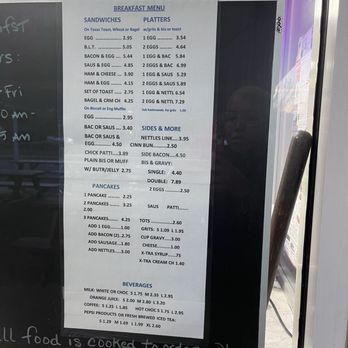 BREAKFAST MENU
SANDWICHES
On Texas Toast, Wheat or Bagel
EGG 2.95
B.L.T. 5.05
BACON & EGG 5.44
SAUS & EGG 4.85
HAM & CHEESE 3.90
HAM & EGG 4.15
SET OF TOAST 2.75
BAGEL & CRM CH 4.25
On Biscuit or Eng Muffin
EGG 2.95
BAC OR SAUS 3.40
BAC OR SAUS &
EGG 4.50
CHICK PATTI 3.89
PLAIN BIS OR MUFF
W/ BUTR/JELLY 2.75
PANCAKES
1 PANCAKE 2.25
2 PANCAKES 3.25
2.00
3 PANCAKES 4.25
ADD 1 EGG 1.00
ADD BACON (2) 2.75
ADD SAUSAGE 1.80
ADD NETTLES 3.00
PLATTERS
w/grits & bis or toast
1 EGG 3.54
2 EGGS 4.64
1 EGG & BAC 5.84
2 EGGS & BAC 6.99
1 EGG & SAUS 5.29
2 EGGS & SAUS 5.89
1 EGG & NETTL 6.54
2 EGG & NETTL 7.29
Sub hashrounds for grits 1.00
SIDES & MORE
NETTLES LINK 3.95
CINN BUN 2.50
SIDE BACON 4.50
BIS & GRAVY:
SINGLE: 4.40
DOUBLE: 7.89
2 EGGS 2.50
SAUS PATTI
TOTS 2.60
GRITS: $ 1.09 L 1.95
CUP GRAVY 3.00
CHEESE 1.00
X-TRA SYRUP .75
X-TRA CREAM CH 1.40
BEVERAGES
MILK: WHITE OR CHOC. S 1.75 M 2.35 L 2.95
ORANGE JUICE: S 2.00 M 2.80 L 3.20
COFFEE: S 1.25 L 1.85 HOT CHOC S 1.75 L 2.95
PEPSI PRODUCTS OR FRESH BREWED ICED TEA:
S 1.29 M 1.69 L 1.99 XL 2.60
food is cooked to order